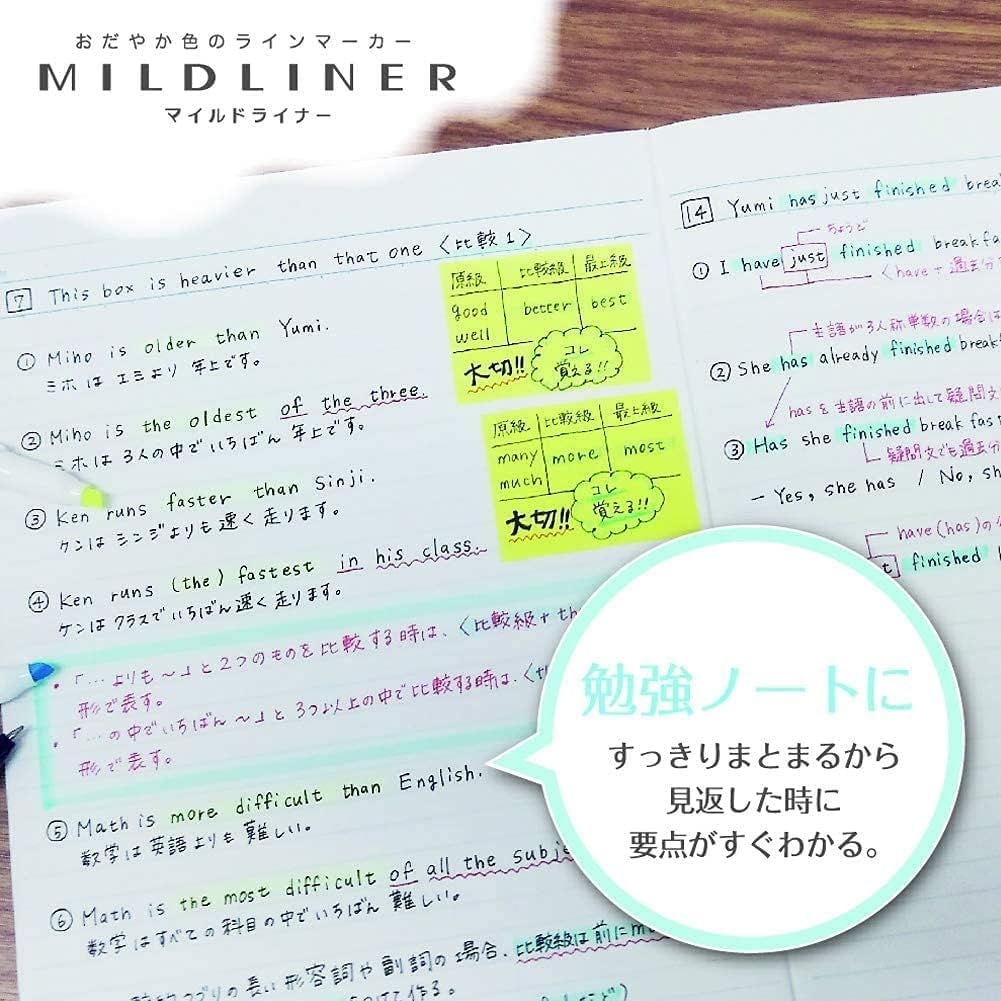 おだやか色のラインマーカー
MILDLINER
マイルドライナー
7 This box is heavier than that one 〈比較1〉
① Miho is older than Yumi.
ミホは エミより 年上です。
② Miho is the oldest of the three.
ミホは 3人の中でいちばん 年上です。
③ Ken runs faster than Sinji.
ケンは シンジよりも 速く 走ります。
④ Ken runs (the) fastest in his class.
ケンは クラスでいちばん 速く 走ります。
・「…よりも〜」と2つのものを比較する時は、〈比較級+th
形で表す。
・「…の中でいちばん〜」と3つ以上の中で比較する時は、〈th
形で表す。
⑤ Math is more difficult than English.
数学は英語よりも難しい。
⑥ Math is the most difficult of all the subje
数学はすべての科目の中でいちばん 難しい。
の長い形容詞や副詞の場合、比較級は前にm
つけて作る。
原級 比較級 最上級
good better best
well
大切!! コレ覚える!!
原級 比較級 最上級
many more most
much
大切!! コレ覚える!!
14 Yumi has just finished brea
ちょうど
① I have just finished breakfa
〈have+過去分
主語が3人称単数の場合は
② She has already finished break
hasを主語の前に出して疑問文
③ Has she finished breakfas
疑問文でも過去分
- Yes, she has / No, sh
have(has)の
t finished b
勉強ノートに
すっきりまとまるから
見返した時に
要点がすぐわかる。